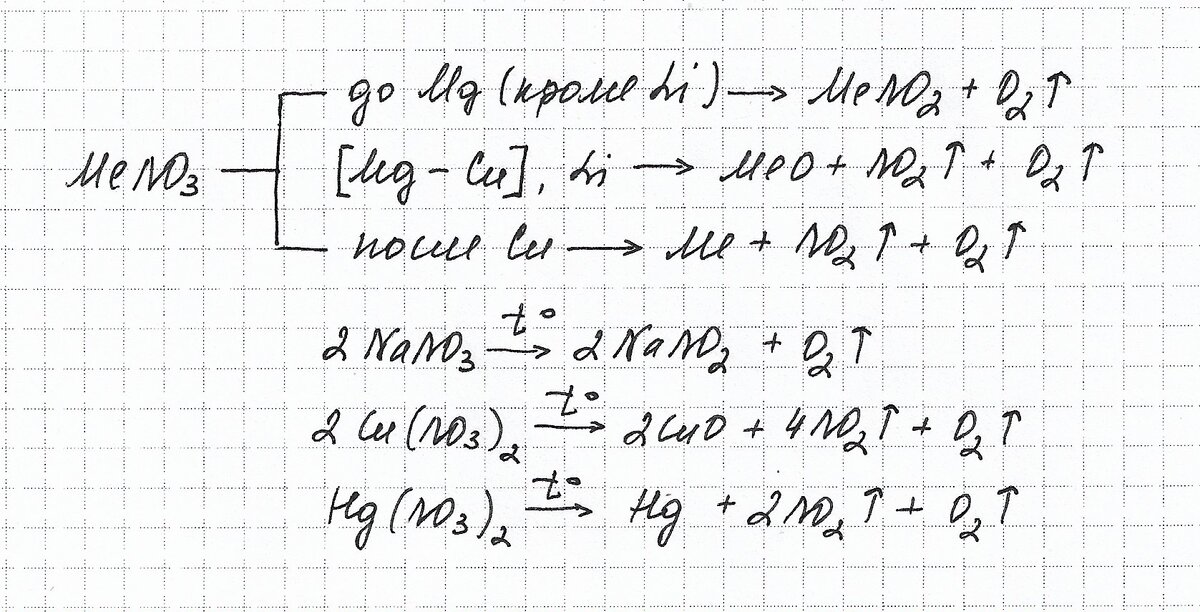 до Mg (кроме Li) → MeNO₂ + O₂↑
MeNO₃ [Mg – Cu], Li → MeO + NO₂↑ + O₂↑
после Cu → Me + NO₂↑ + O₂↑
2NaNO₃ t°→ 2NaNO₂ + O₂↑
2Cu(NO₃)₂ t°→ 2CuO + 4NO₂↑ + O₂↑
Hg(NO₃)₂ t°→ Hg + 2NO₂↑ + O₂↑